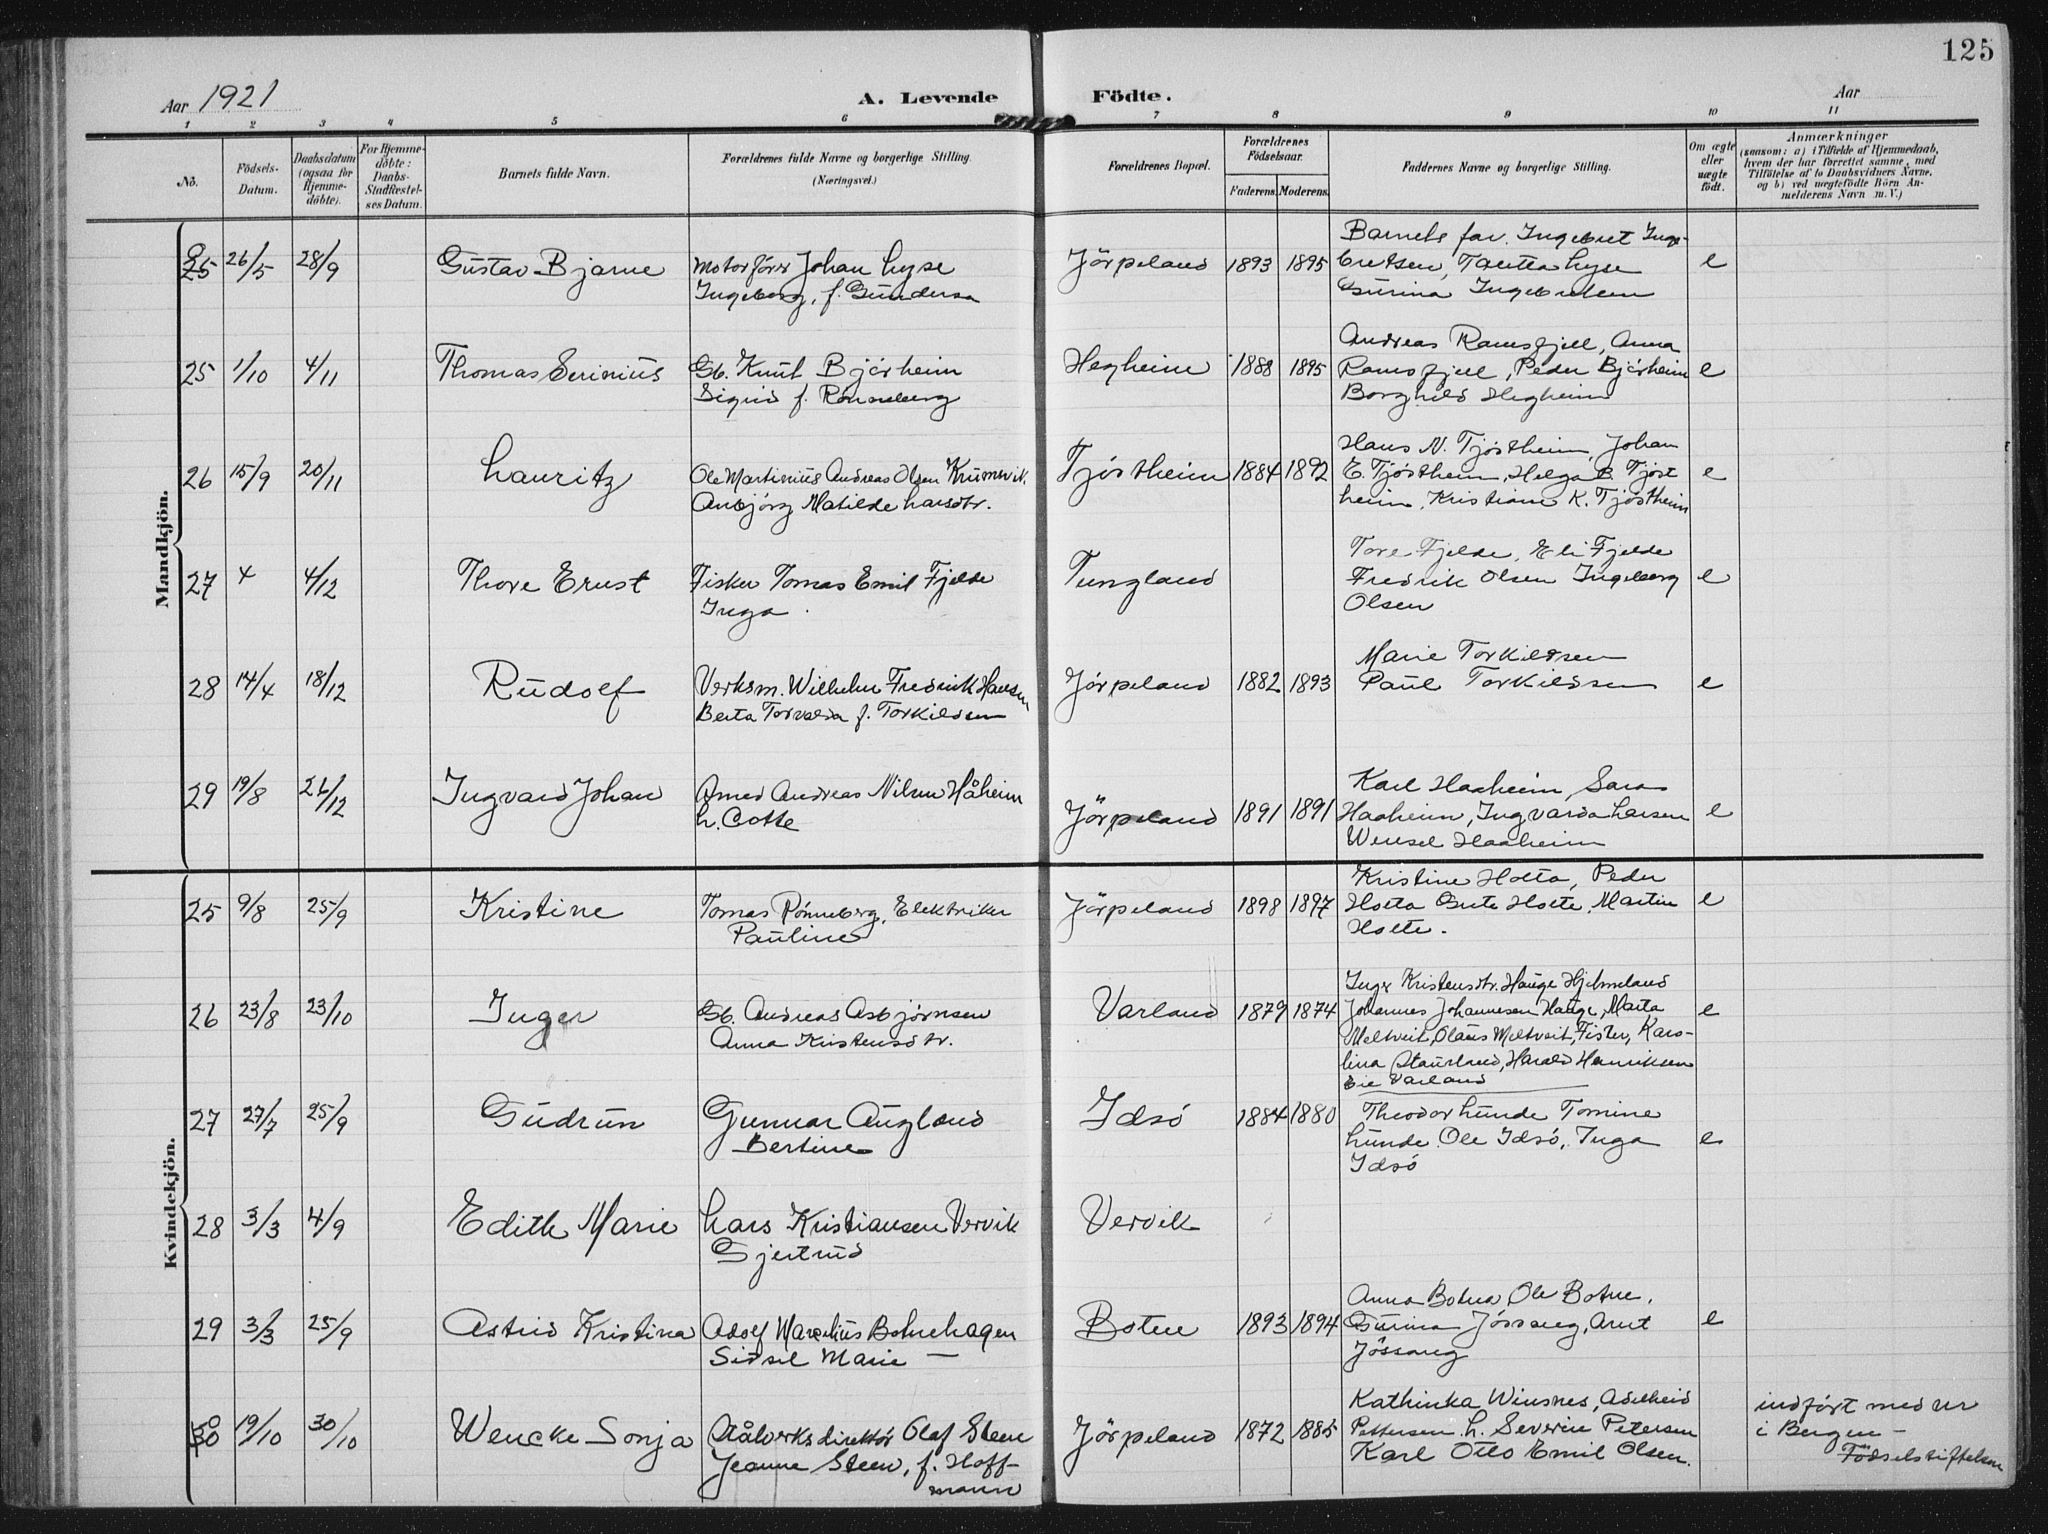 125
Aar 1921
A. Levende
Födte.
Aar
1 2 3 4 5 6 7 8 9 10 11
No.
Födsels-
Datum.
Daabsdatum
(ogsaa for
Hjemme-
döbte).
For Hjemme-
döbte:
Daabs-
Stadfæstel-
ses Datum.
Barnets fulde Navn.
Forældrenes fulde Navne og borgerlige Stilling.
(Næringsvei.)
Forældrenes Bopæl.
Forældrenes
Födselsaar.
Faderens. Moderens.
Faddernes Navne og borgerlige Stilling.
Om ægte
eller
uægte
födt.
Anmærkninger
(saasom: a) i Tilfælde af Hjemmedaab,
hvem der har forrettet samme, med
Tilföielse af to Daabsvidners Navne,
og b) ved uægtefödte Börn An-
melderens Navn m. V.)
Mandkjön.
26/5 28/9 Gustav Bjarne
Motorförer Johan Lyse
Ingeborg, f. Gundersen
Jörpeland 1893 1895
Barnets far. Ingebret Inge-
bretsen, Lyse
Gurina Ingebretsen
e
25 1/10 4/11 Thomas Serinius
Gb. Knut Bjørheim
Sigrid f. Rønneberg
Hegheim 1888 1895
Andreas Ramsfjell, Anna
Ramsfjell, Peder Bjørheim
Borghild Hegheim
e
26 15/9 20/11 Lauritz
Ole Martinius Andreas Olsen Krumsvik.
Anbjørg Matilde Larsdtr.
Tjøstheim 1884 1892
Hans N. Tjøstheim, Johan
E. Tjøstheim, Helga B. Tjøst
heim, Kristiane K. Tjøstheim
e
27 4 4/12 Thore Ernst
Fisker Tomas Emil Fjelde
Inga.
Tungland
Tore Fjelde, Eli Fjelde
Fredrik Olsen Ingeborg
Olsen
e
28 14/4 18/12 Rudolf
Verksm. Wilhelm Fredrik Hansen
Berta Torvalda f. Torkildsen
Jørpeland 1882 1893
Marie Torkildsen
Paul Torkildsen
e
29 19/8 26/12 Ingvard Johan
Amed Andreas Nilsen Håheim
L. Cotte
Jørpeland 1891 1891
Karl Haaheim, Sara
Haaheim, Ingvarda Larsen
Wensel Haaheim
e
Kvindekjön.
25 9/8 25/9 Kristine
Tomas Rønneberg, Elektriker
Pauline
Jørpeland 1898 1897
Kristine Holta, Peder
Holta Grete Holte, Martin
Holte.
e
26 23/8 23/10 Inger
Gb. Andreas Asbjørnsen
Anna Kristensdtr.
Varland 1879 1874
Inger Kristensdtr. Hauge Hjelmeland
Johannes Johannesen Hauge, Marta
Meltveit, Olaus Meltveit, Fister, Karo-
lina Staurland, Harald Henriksen
Eie Varland
e
27 27/7 25/9 Gudrun
Gunnar Augland
Bertine
Idsø 1884 1880
Theodor Lunde Tomine
Lunde Ole Idsø, Inga
Idsø
e
28 3/3 4/9 Edith Marie
Lars Kristiansen Vervik
Gjertrud
Vervik
29 3/3 25/9 Astrid Kristina
Adolf Marselius Botnehagen
Sidsel Marie —
Botne 1893 1894
Anna Botna, Ole Botne,
Gurina Jøssang, Arnt
Jøssang
e
30 19/10 30/10 Wencke Sonja
Stålverksdirektør Olaf Steen
Jeanne Steen, f. Hoff-
mann
Jørpeland 1872 1885
Kathinka Winsnes, Adelheid
Pettersen. L. Severin Petersen
Karl Otto Emil Olsen.
indført med nr
i Bergen —
Fødselsstiftelsen